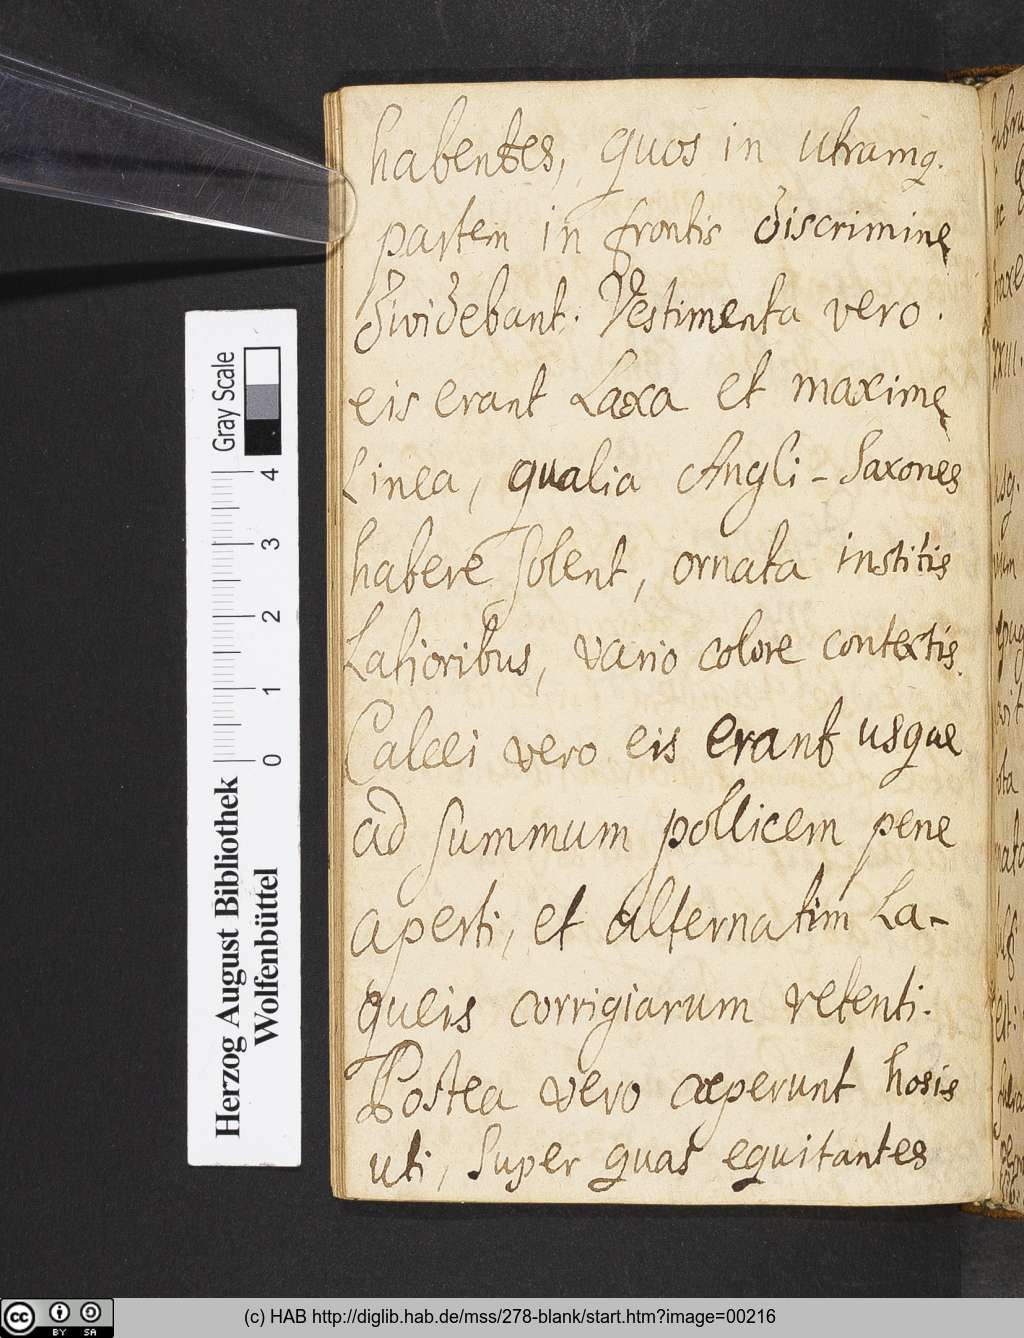 habentes, quos in utramq.
partem in frontis discrimine
dividebant. Vestimenta vero
eis erant Laxa et maxime
Linea, qualia Angli-Saxones
habere solent, ornata institis
Latioribus, vario colore contextis.
Calcei vero eis erant usque
ad summum pollicem pene
aperti, et alternatim La-
queis corrigiarum retenti.
Postea vero cæperunt hosis
uti, super quas equitantes
Gray Scale
4
3
2
1
0
Herzog August Bibliothek
Wolfenbüttel
cc BY SA
(c) HAB http://diglib.hab.de/mss/278-blank/start.htm?image=00216